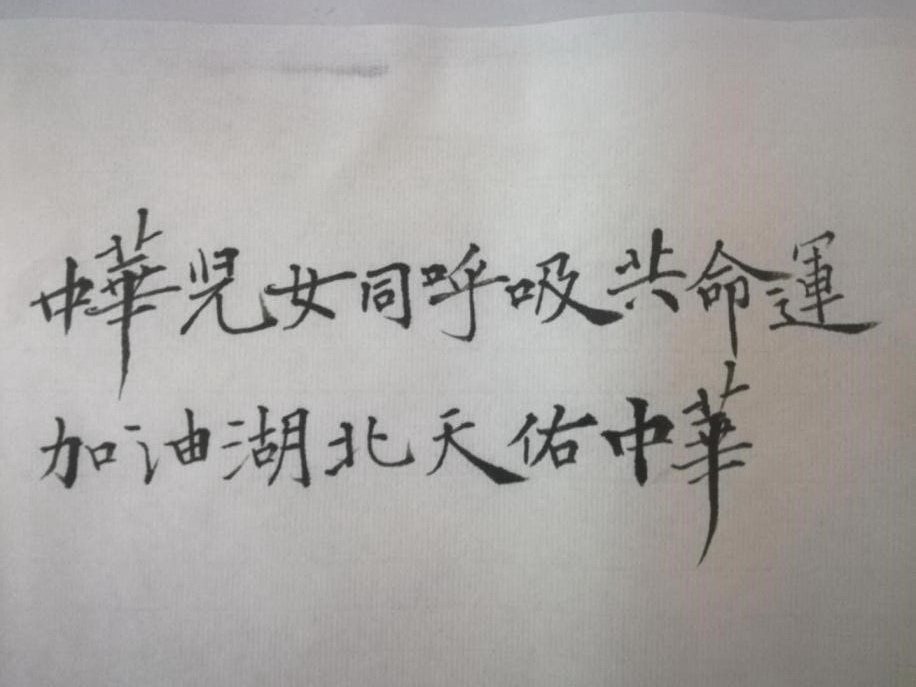 中華兒女同呼吸共命運
加油湖北天佑中華